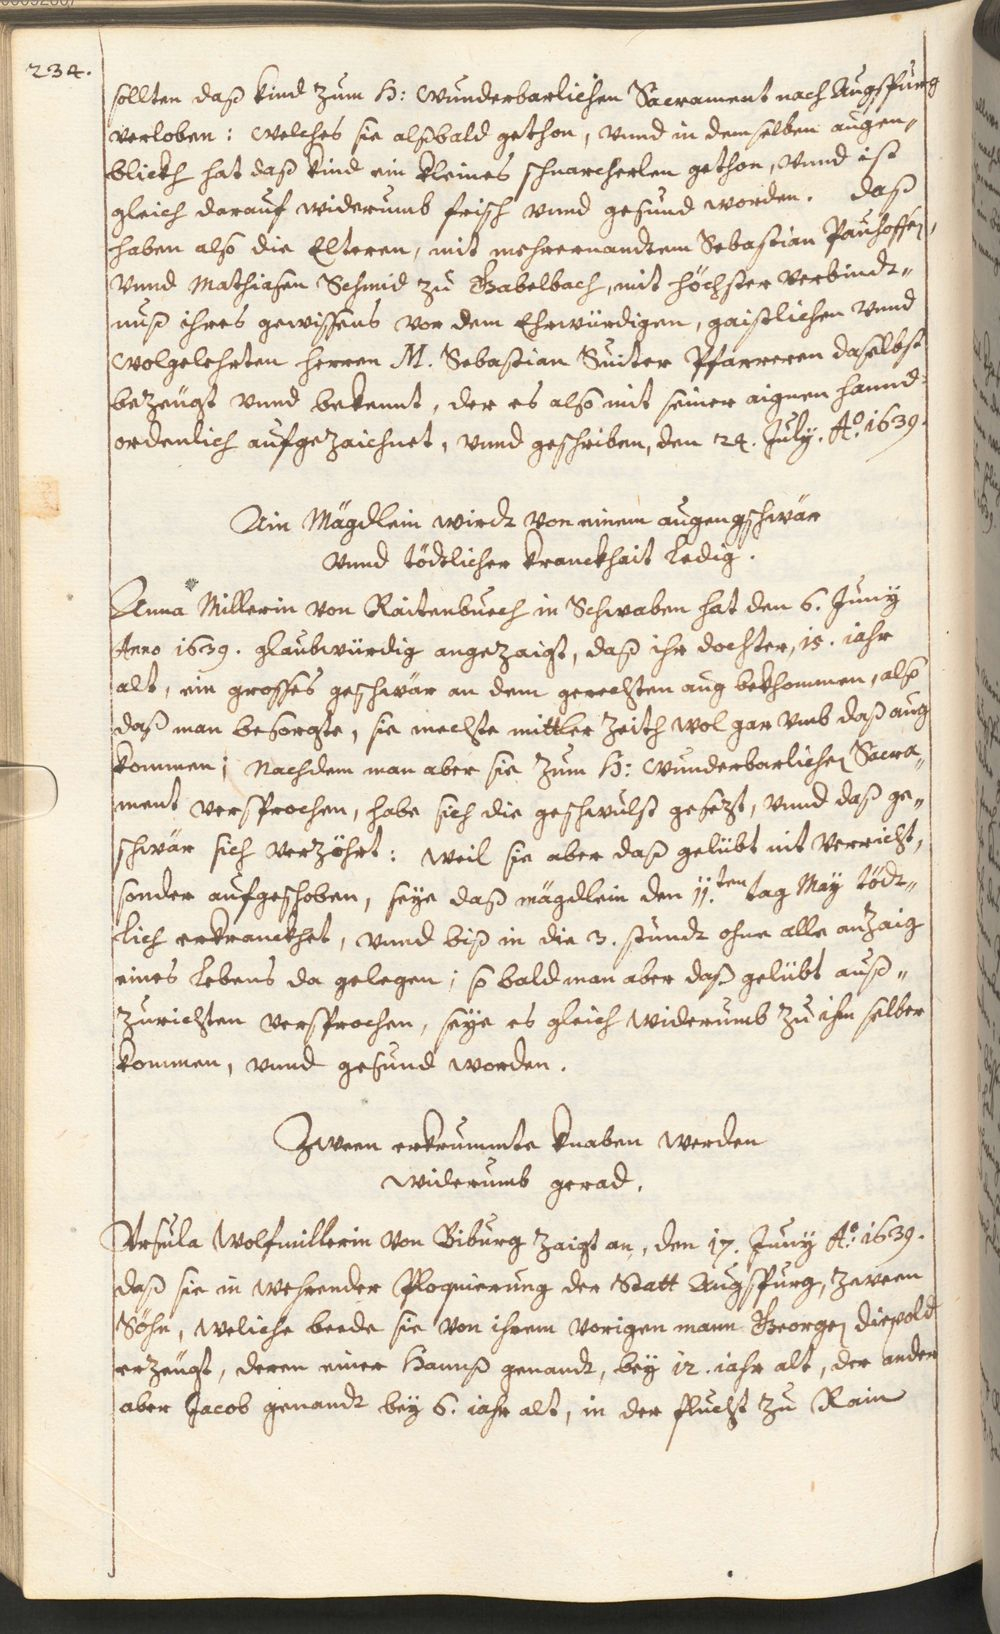 234.
sollten daß kind zum H: Wunderbarlichen Sacrament nach Augspurg
verloben: welches sie alßbald gethon, vnnd in demselben augen„
blickh hat daß kind ein kleines schnarcherlen gethon, vnnd ist
gleich darauf widerumb frisch vnnd gesund worden. Daß
haben also die Elteren, mit mehrernandtem Sebastian Pauhoffen,
vnnd Mathiasen Schmid zu Gabelbach, mit höchster verbindt„
nuß ihres gewissens vor dem Ehrwürdigen, gaistlichen vnnd
wolgelehrten herren M. Sebastian Suiter Pfarreren daselbst
bezeugt vnnd bekennt, der es also mit seiner aignen hannd
ordenlich aufgezaichnet, vnnd geschriben, den 24. July. Aº. 1639.
Ain Mägdlein wirdt von einem augengschwär
vnnd tödtlicher kranckhait ledig.
Anna Millerin von Raitenbuech in Schwaben hat den 6. Juny
Anno 1639. glaubwürdig angezaigt, daß ihr dochter, 15. iahr
alt, ein grosses geschwär an dem gerechten aug bekhommen, also
daß man besorgte, sie mechte mittler zeith wol gar vmb daß aug
kommen; Nachdem man aber sie zum H: wunderbarlichen Sacra„
ment versprochen, habe sich die geschwulst gesezt, vnnd daß ge„
schwär sich verzöhrt: weil sie aber daß gelübt nit verricht,
sonder aufgeschoben, seye daß mägdlein den 11.ten tag May tödt„
lich erkranckhet, vnnd biß in die 3. stundt ohne alle anzaig
eines lebens da gelegen; so bald man aber daß gelübt auß„
zurichten versprochen, seye es gleich widerumb zu ihm selber
kommen, vnnd gesund worden.
Zween erkrummte knaben werden
widerumb gerad.
Vrsula Wolfmillerin von Biburg zaigt an, den 17. Juny Aº. 1639.
daß sie in wehrender Ploquierung der Statt Augspurg, zween
Söhn, weliche beede sie von ihrem vorigen mann Georgen Diepold
erzeugt, deren einer Hannß genandt, bey 12. iahr alt, der ander
aber Jacob genandt bey 6. iahr alt, in der flucht zu Rain